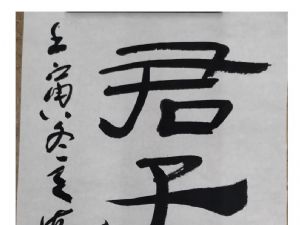 君子
壬寅冬